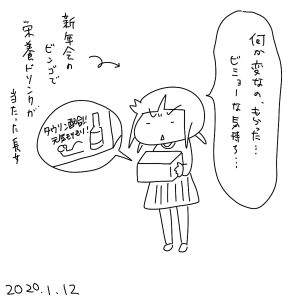 何か変なの、もらった…
ビミョーな気持ち…
新年会の
ビンゴで
栄養ドリンクが
当たった長女
タウリン配合!
2020.1.12